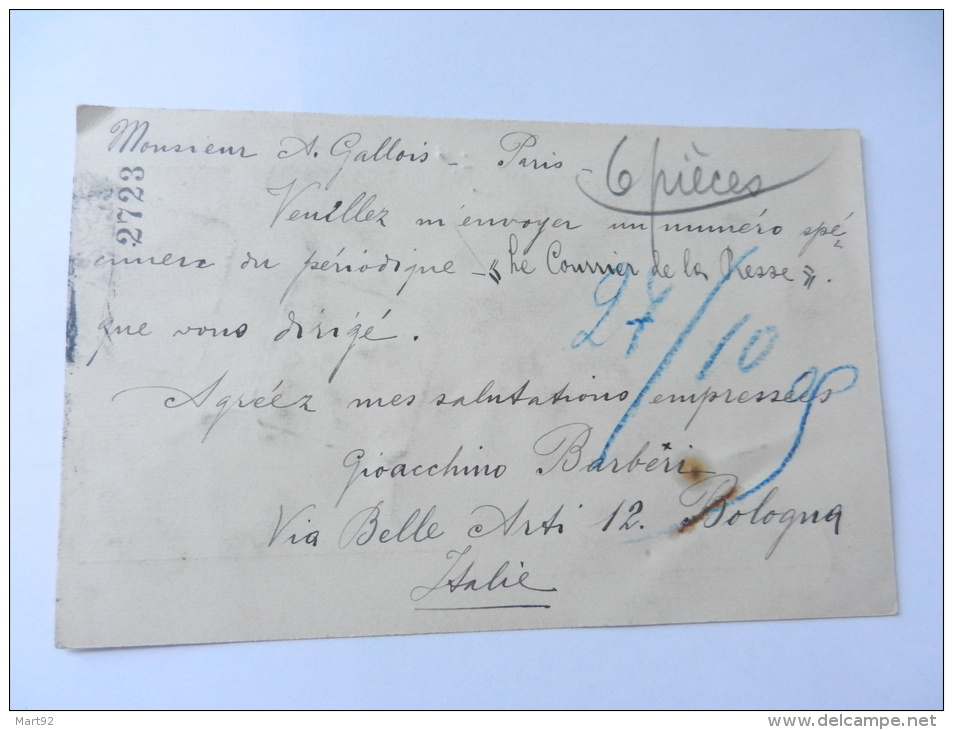 Monsieur A. Gallois - Paris -
6 pièces
2723
Veuillez m'envoyer un numéro spé-
cimen du périodique - « Le Courrier de la Presse ».
que vous dirigé.
24/10
Agréez mes salutations empressées
Gioacchino Barbèri
Via Belle Arti 12. Bologna
Italie
Mart92
www.delcampe.net